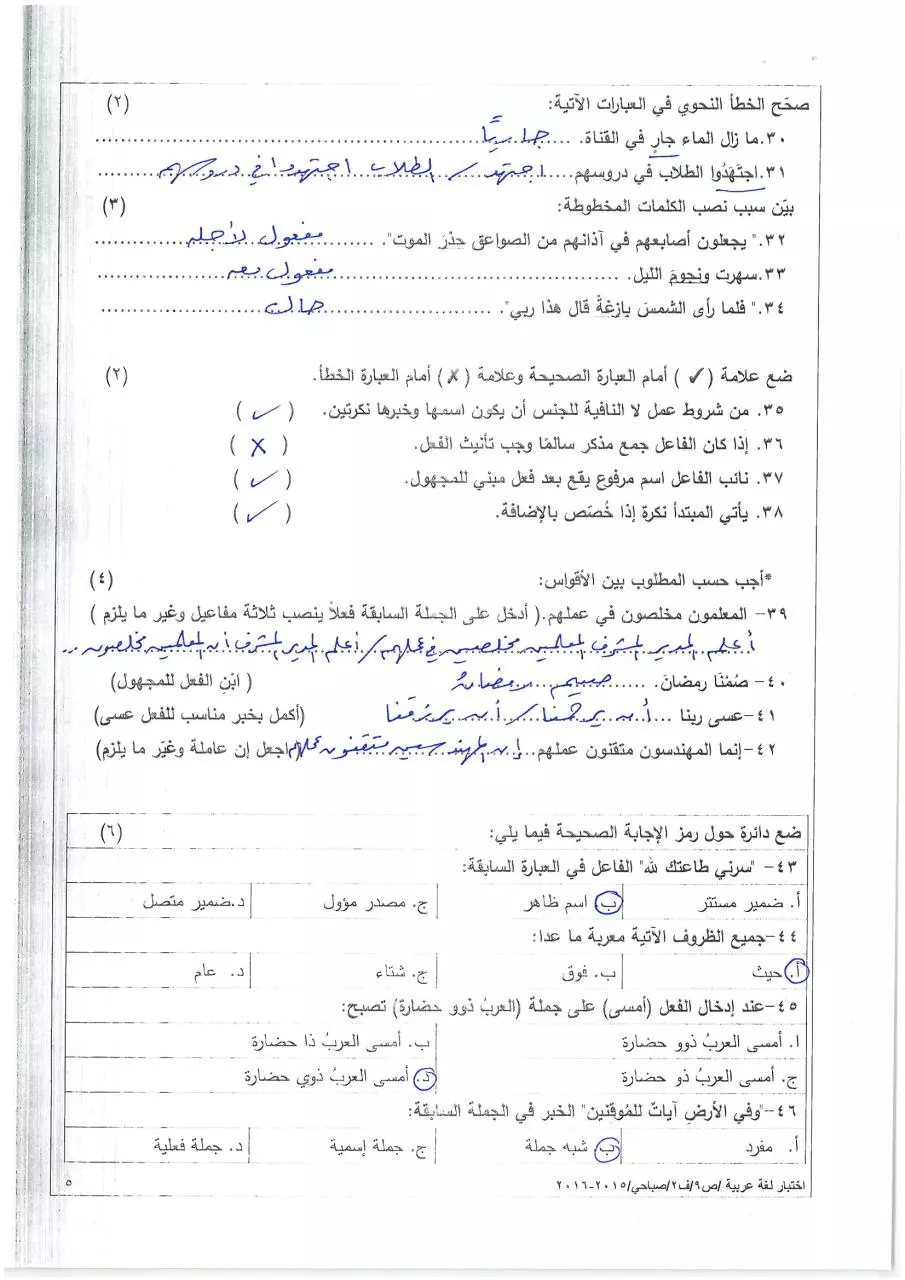 صحّح الخطأ النحوي في العبارات الآتية: (٢)
٣٠. ما زال الماء جارٍ في القناة. .... جاريًا ....
٣١. اجتَهَدُوا الطلاب في دروسهم.... اجتهد / الطلاب اجتهدوا في دروسهم ....
بيّن سبب نصب الكلمات المخطوطة: (٣)
٣٢. " يجعلون أصابعهم في آذانهم من الصواعق حذرَ الموت". .... مفعول لأجله ....
٣٣. سهرت ونجومَ الليل. .... مفعول معه ....
٣٤. " فلما رأى الشمسَ بازغةً قال هذا ربي". .... حال ....
ضع علامة ( ✓ ) أمام العبارة الصحيحة وعلامة ( ✗ ) أمام العبارة الخطأ. (٢)
٣٥. من شروط عمل لا النافية للجنس أن يكون اسمها وخبرها نكرتين. ( ✓ )
٣٦. إذا كان الفاعل جمع مذكر سالمًا وجب تأنيث الفعل. ( X )
٣٧. نائب الفاعل اسم مرفوع يقع بعد فعل مبني للمجهول. ( ✓ )
٣٨. يأتي المبتدأ نكرة إذا خُصّص بالإضافة. ( ✓ )
*أجب حسب المطلوب بين الأقواس: (٤)
٣٩- المعلمون مخلصون في عملهم. ( أدخل على الجملة السابقة فعلاً ينصب ثلاثة مفاعيل وغير ما يلزم )
أعلم المدير المشرف المعلمين مخلصين في عملهم / أعلم المدير المشرف أن المعلمين مخلصون ...
٤٠- صُمْنَا رمضانَ. .... صِيمَ رمضانُ ( ابْنِ الفعل للمجهول)
٤١- عسى ربنا ... أن يرحمنا / أن يرزقنا (أكمل بخبر مناسب للفعل عسى)
٤٢- إنما المهندسون متقنون عملهم... إن المهندسين متقنون عملهم (اجعل إن عاملة وغيّر ما يلزم)
ضع دائرة حول رمز الإجابة الصحيحة فيما يلي: (٦)
٤٣- "سرني طاعتك لله" الفاعل في العبارة السابقة:
أ. ضمير مستتر ب. اسم ظاهر ج. مصدر مؤول د. ضمير متصل
٤٤- جميع الظروف الآتية معربة ما عدا:
أ. حيث ب. فوق ج. شتاء د. عام
٤٥- عند إدخال الفعل (أمسى) على جملة (العربُ ذوو حضارة) تصبح:
ا. أمسى العربُ ذوو حضارة ب. أمسى العربُ ذا حضارة
ج. أمسى العربُ ذو حضارة د. أمسى العربُ ذوي حضارة
٤٦- "وفي الأرضِ آياتٌ للمُوقنين" الخبر في الجملة السابقة:
أ. مفرد ب. شبه جملة ج. جملة إسمية د. جملة فعلية
اختبار لغة عربية /ص٩/ف٢/صباحي/٢٠١٥-٢٠١٦ ٥